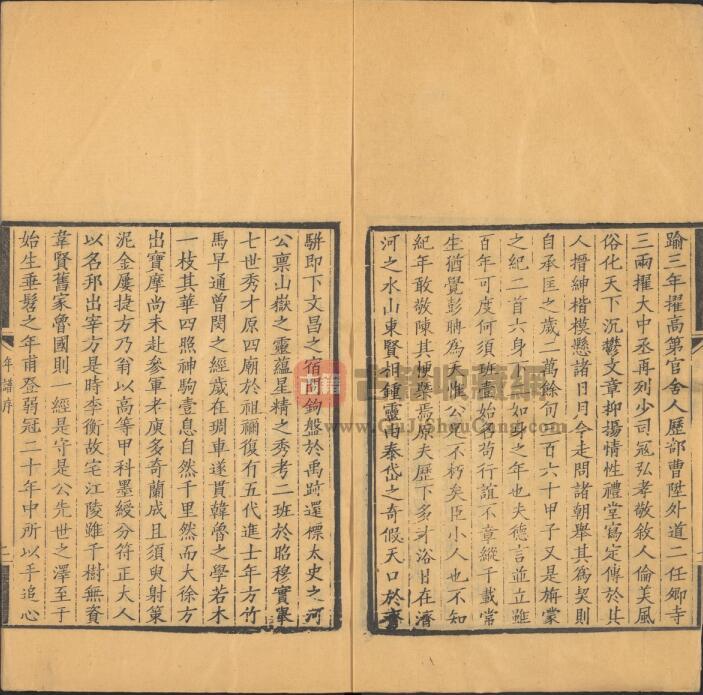 踰三年擢高第官舍人歷部曹陞外道二任卿寺
三兩擢大中丞再列少司寇弘孝敬敘人倫美風
俗化天下沉鬱文章抑揚情性禮堂寫定傳於其
人搢紳楷模懸諸日月今走問諸朝舉其為契則
自承匡之歲二萬餘旬二百六十甲子又是旃蒙
之紀二首六身下二如身之年也夫德言並立雖
百年可度何須班壹始名苟行誼不章縱千載常
生猶覺彭聃為夭惟公是不朽矣臣小人也不知
紀年敢敬陳其梗槩焉原夫歷下多才浴日在濟
河之水山東賢相鍾靈由泰岱之奇假天口於齊
駢即下文昌之宿問鉤盤於禹跡還標太史之河
公禀山嶽之靈蘊星精之秀考二班於昭穆實舉
七世秀才原四廟於祖禰復有五代進士年方竹
馬早通曾閔之經歲在琱車遂貫韓魯之學若木
一枝其華四照神駒壹息自然千里然而大徐方
出寶摩尚未赴參軍老庾多奇蘭成且須臾射策
泥金屢捷方乃翁以高等甲科墨綬分符正大人
以名邦出宰方是時李衡故宅江陵雖千樹無資
韋賢舊家魯國則一經是守是公先世之澤至于
始生垂髫之年甫登弱冠二十年中所以手追心
年譜序
二
古籍收藏網
GuJiShouCang.Com